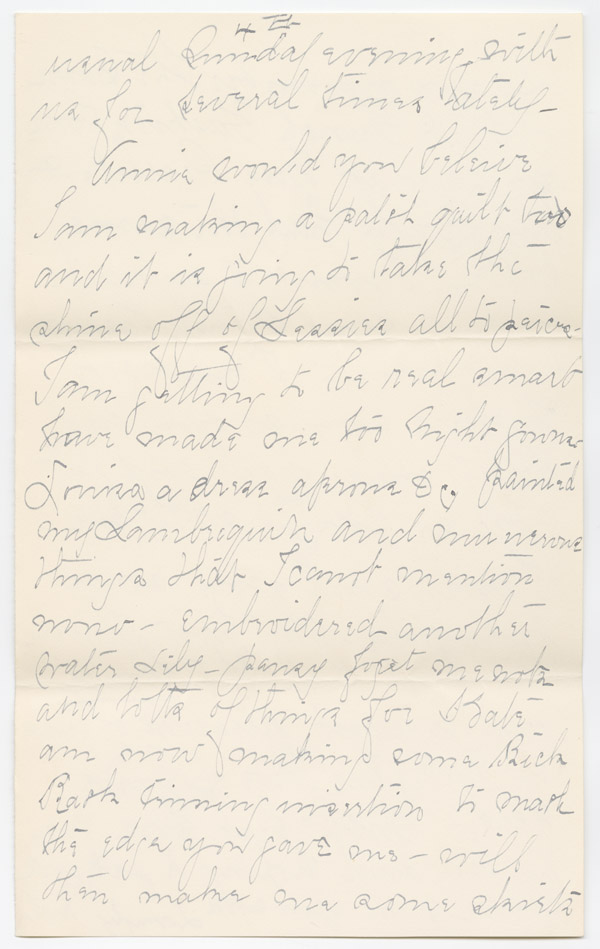 4th
usual Sunday evening with
us for several times lately -
Annie would you beleive
I am making a patch quilt too
and it is going to take the
shine off of Lessies all to peices.
I am getting to be real smart
have made me too night gowns
Louisa a dress aprons &c, painted
my Lambrequin and numerous
things that I canot mention
now - embroidered another
water Lily - pansy forget menots
and lotts of things for Kate
am now making some Rick
Rack trimming insertion to mach
the edge you gave me - will
then make me some skirts